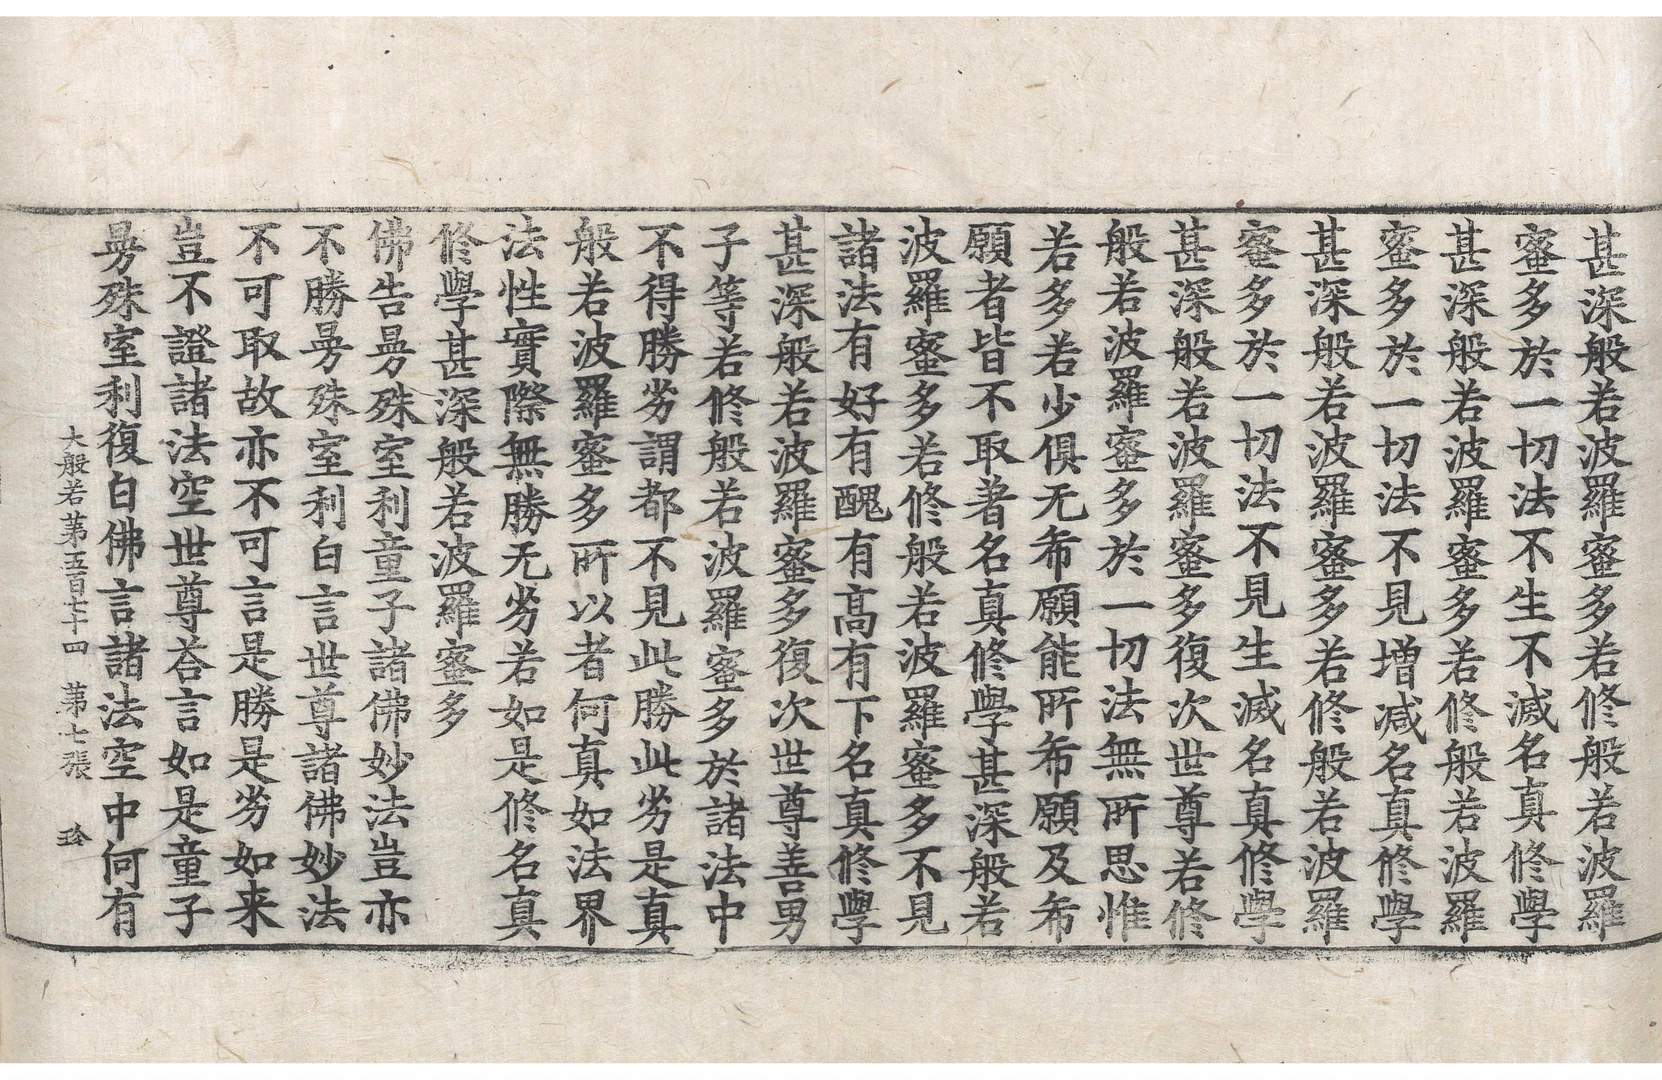 甚深般若波羅蜜多若修般若波羅
蜜多於一切法不生不滅名真修學
甚深般若波羅蜜多若修般若波羅
蜜多於一切法不見增減名真修學
甚深般若波羅蜜多若修般若波羅
蜜多於一切法不見生滅名真修學
甚深般若波羅蜜多復次世尊若修
般若波羅蜜多於一切法無所思惟
若多若少俱无希願能所希願及希
願者皆不取著名真修學甚深般若
波羅蜜多若修般若波羅蜜多不見
諸法有好有醜有高有下名真修學
甚深般若波羅蜜多復次世尊善男
子等若修般若波羅蜜多於諸法中
不得勝劣謂都不見此勝此劣是真
般若波羅蜜多所以者何真如法界
法性實際無勝无劣若如是修名真
修學甚深般若波羅蜜多
佛告曼殊室利童子諸佛妙法豈亦
不勝曼殊室利白言世尊諸佛妙法
不可取故亦不可言是勝是劣如来
豈不證諸法空世尊荅言如是童子
曼殊室利復白佛言諸法空中何有
大般若第五百七十四 第七張 珍